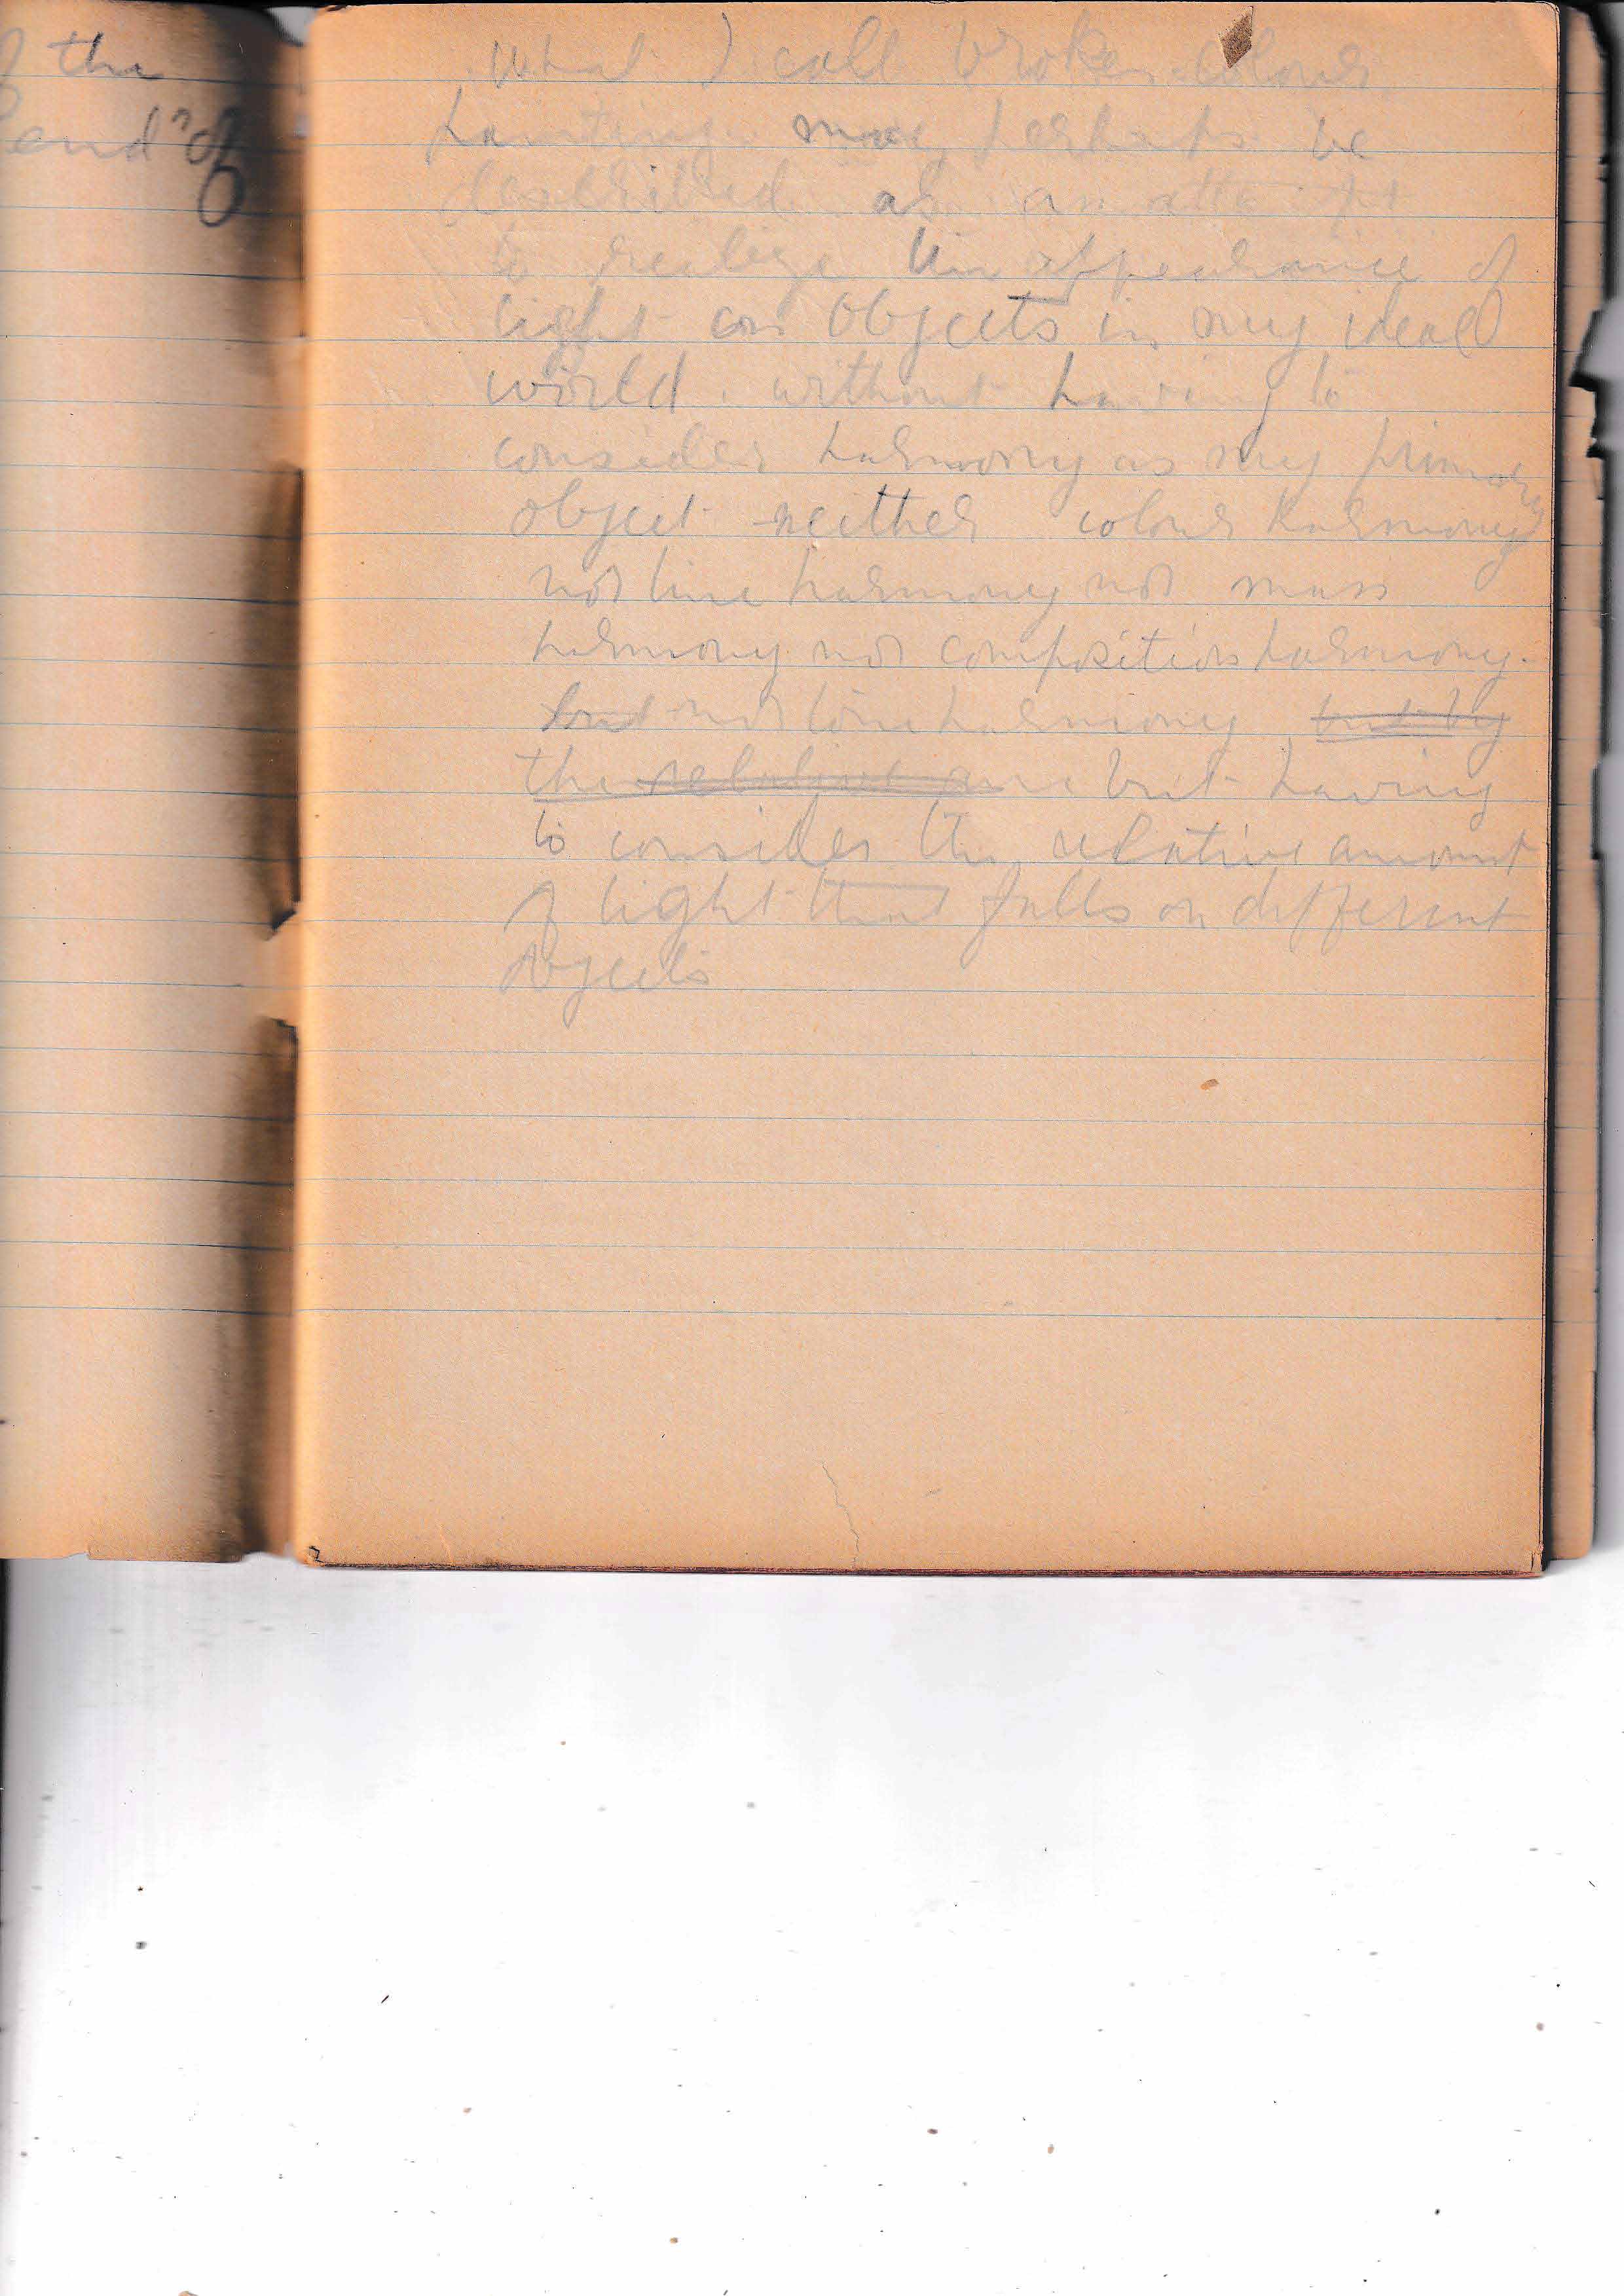 the
end" of
What I call broken colour
painting may perhaps be
described as an attempt
to realize the appearance of
light on objects in my ideal
world. without having to
consider harmony as my primary
object neither colour harmony
nor line harmony nor mass
harmony nor composition harmony.
but nor tone harmony but by
the relative am but having
to consider the relative amount
of light that falls on different
objects